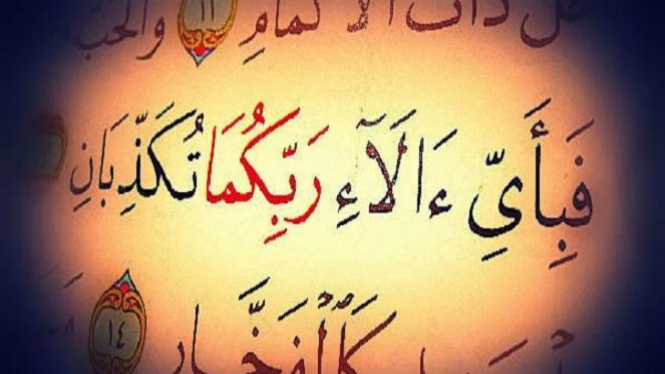 ذات الأكمامِ ١١ والحبّ
فَبِأَيِّ ءَالَآءِ رَبِّكُمَا تُكَذِّبَانِ
كَٱلْفَخَّارِ ١٤